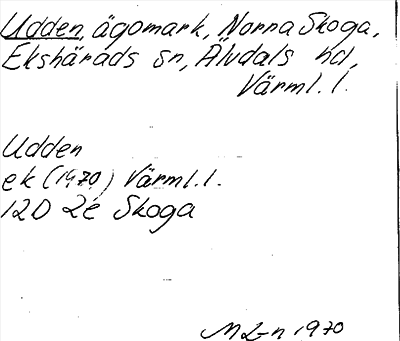 Udden, ägomark, Norra Skoga,
Ekshärads sn, Älvdals hd,
Värml. l.
Udden
ek (1970) Värml. l.
12D 2e Skoga
M L-n 1970